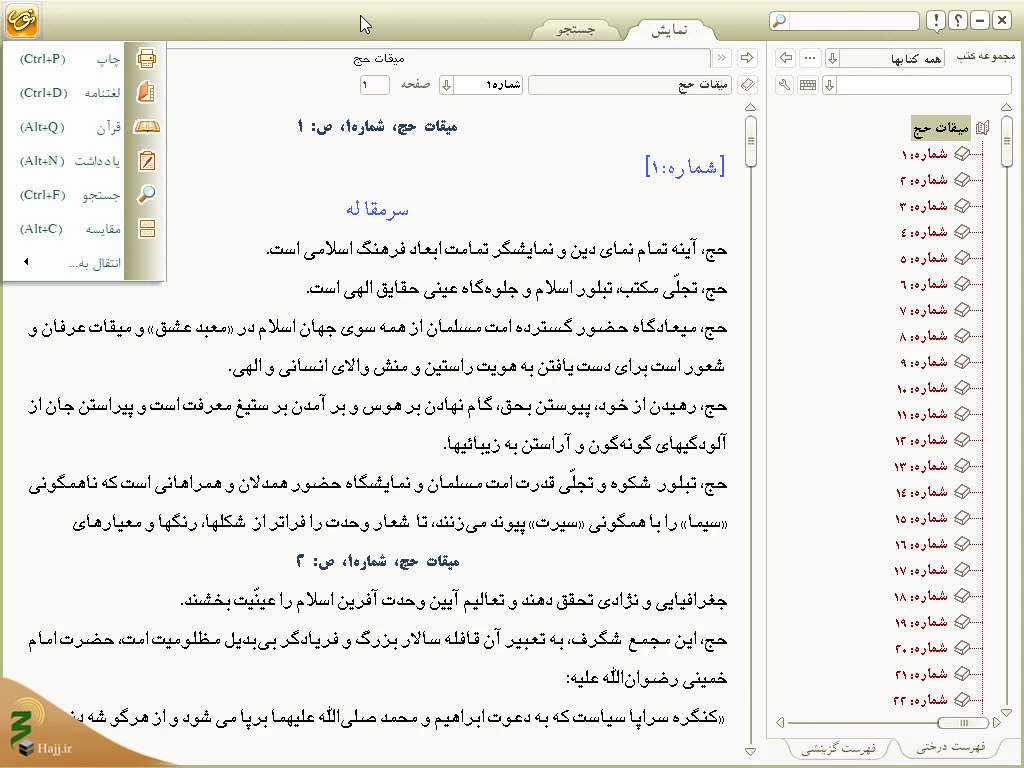 نمایش
جستجو
مجموعه کتب
همه کتابها
میقات حج
میقات حج
شماره۱
صفحه
۱
چاپ (Ctrl+P)
لغتنامه (Ctrl+D)
قرآن (Alt+Q)
یادداشت (Alt+N)
جستجو (Ctrl+F)
مقایسه (Alt+C)
انتقال به...
میقات حج، شماره۱، ص: ۱
[شماره:۱]
سرمقاله
حج، آینه تمام نمای دین و نمایشگر تمامت ابعاد فرهنگ اسلامی است.
حج، تجلّی مکتب، تبلور اسلام و جلوه‌گاه عینی حقایق الهی است.
حج، میعادگاه حضور گسترده امت مسلمان از همه سوی جهان اسلام در «معبد عشق» و میقات عرفان و
شعور است برای دست یافتن به هویت راستین و منش والای انسانی و الهی.
حج، رهیدن از خود، پیوستن بحق، گام نهادن بر هوس و بر آمدن بر ستیغ معرفت است و پیراستن جان از
آلودگیهای گونه‌گون و آراستن به زیبائیها.
حج، تبلور شکوه و تجلّی قدرت امت مسلمان و نمایشگاه حضور همدلان و همراهانی است که ناهمگونی
«سیما» را با همگونی «سیرت» پیوند می‌زنند، تا شعار وحدت را فراتر از شکلها، رنگها و معیارهای
میقات حج، شماره۱، ص: ۲
جغرافیایی و نژادی تحقق دهند و تعالیم آیین وحدت آفرین اسلام را عینّیت بخشند.
حج، این مجمع شگرف، به تعبیر آن قافله سالار بزرگ و فریادگر بی‌بدیل مظلومیت امت، حضرت امام
خمینی رضوان‌اللّه علیه:
«کنگره سراپا سیاست که به دعوت ابراهیم و محمد صلی‌اللّه علیهما برپا می شود و از هرگوشه
میقات حج
شماره: ۱
شماره: ۲
شماره: ۳
شماره: ٤
شماره: ۵
شماره: ٦
شماره: ۷
شماره: ۸
شماره: ۹
شماره: ۱۰
شماره: ۱۱
شماره: ۱۲
شماره: ۱۳
شماره: ۱٤
شماره: ۱۵
شماره: ۱٦
شماره: ۱۷
شماره: ۱۸
شماره: ۱۹
شماره: ۲۰
شماره: ۲۱
شماره: ۲۲
فهرست درختی
فهرست گزینشی
Hajj.ir